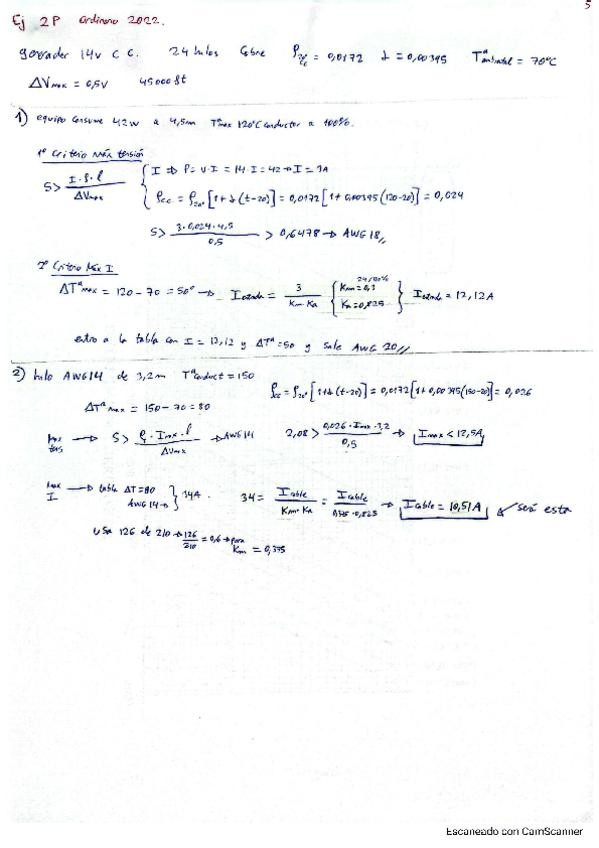 5
Ej 2P Ordinario 2022.
generador 14v C C. 24 hilos Cobre ρ20º cc = 0,0172 α = 0,00395 Tª ambiental = 70ºC
ΔVmax = 0,5V 45000 ft
1) equipo consume 42w a 4,5m Tª max 120ºC conductor a 100%.
1º Criterio Máx tensión
S > I · ρ · l / ΔVmax { I ⇒ P = V · I = 14 · I = 42 → I = 3A
ρcc = ρ20º [1 + α (t-20)] = 0,0172 [1 + 0,00395 (120-20)] = 0,024
S > 3 · 0,024 · 4,5 / 0,5 > 0,6478 → AWG 18
2º Criterio Max I
ΔTª max = 120 - 70 = 50º → I entrada = 3 / Km · Ka { 24/100% Km = 0,3 Ka = 0,825 } I entrada = 12,12A
entro a la tabla con I = 12,12 y ΔTª = 50 y sale AWG 20
2) hilo AWG14 de 3,2m Tª conduct = 150 ρcc = ρ20º [1 + α (t-20)] = 0,0172 [1 + 0,00395 (150-20)] = 0,026
ΔTª max = 150 - 70 = 80
Max tens → S > ρ · Imax · l / ΔVmax → AWG14 2,08 > 0,026 · Imax · 3,2 / 0,5 → Imax < 12,5A
Max I → tabla ΔT = 80 AWG 14 } 34A. 34 = Icable / Km · Ka = Icable / 0,375 · 0,825 → Icable = 10,51A será esta
usa 126 de 210 → 126/210 = 0,6 → para Km = 0,375
Escaneado con CamScanner